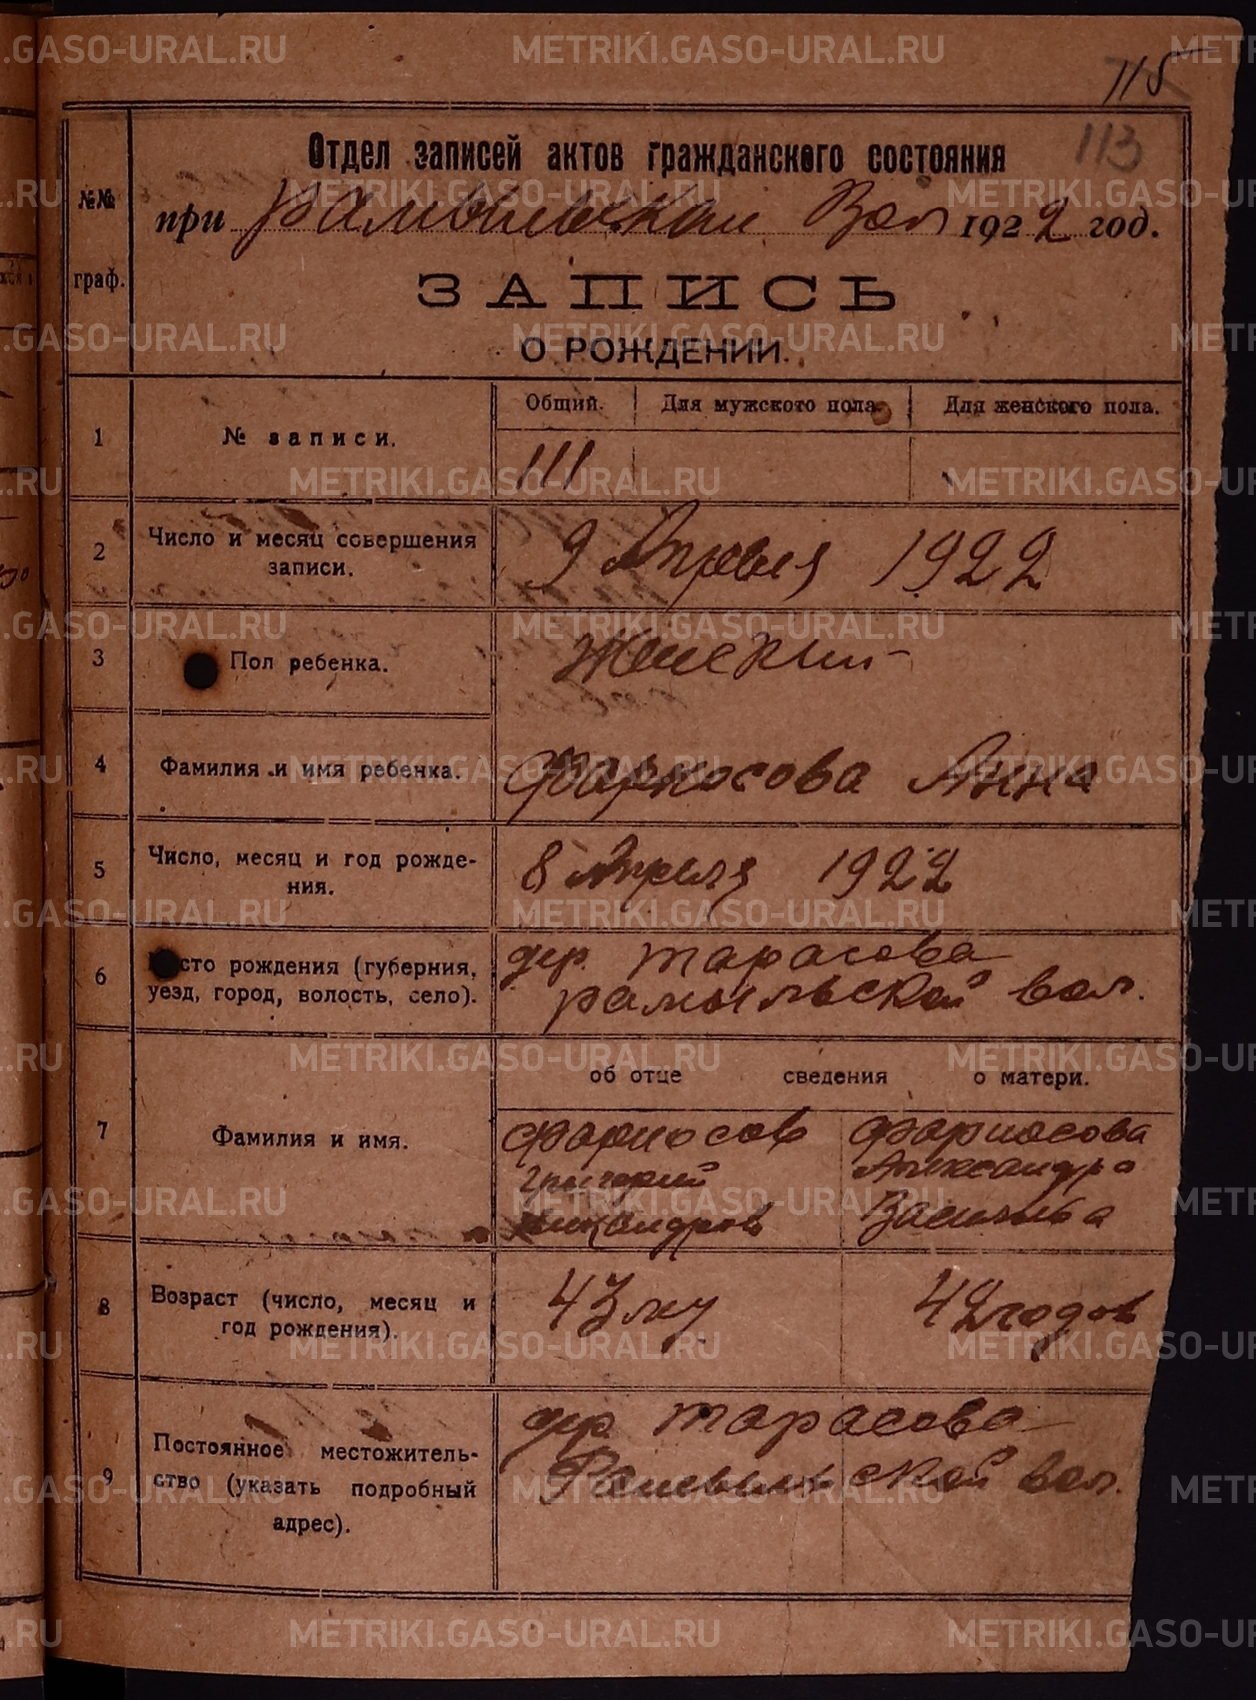 115
113
Отдел записей актов гражданского состояния
№№ граф.
при Рамыльской Вол 1922 год.
ЗАПИСЬ
О РОЖДЕНИИ.
Общий. Для мужского пола. Для женского пола.
1 № записи. 111
2 Число и месяц совершения 9 Апреля 1922
записи.
3 Пол ребенка. Женский
4 Фамилия и имя ребенка. Фарносова Анна
5 Число, месяц и год рожде- 8 Апреля 1922
ния.
6 сто рождения (губерния, дер. Тарасова
уезд, город, волость, село). рамыльской вол.
об отце сведения о матери.
7 Фамилия и имя. Фарносов Фарносова
Григорий Александра
Васильева
8 Возраст (число, месяц и 43 42 годов
год рождения).
9 Постоянное местожитель- дер. Тарасова
ство (указать подробный Рамыльской вол.
адрес).
METRIKI.GASO-URAL.RU